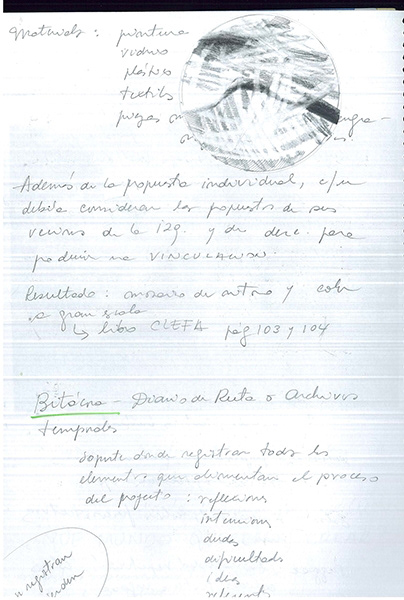 Materiales: pintura
vidrio
plástico
textiles
piezas
Además de la propuesta individual, c/u
debía considerar las propuestas de sus
vecinos de la izq. y de derc. para
producir una VINCULACION.
Resultado: mosaico de ritmo y color
a gran escala
↳ libro CLEFA pág 103 y 104
Bitácora - Diario de Ruta o Archivos
temporales
soporte donde registran todos los
elementos que alimentan el proceso
del proyecto: reflexiones
intenciones
dudas
dificultades
ideas
referentes
registran